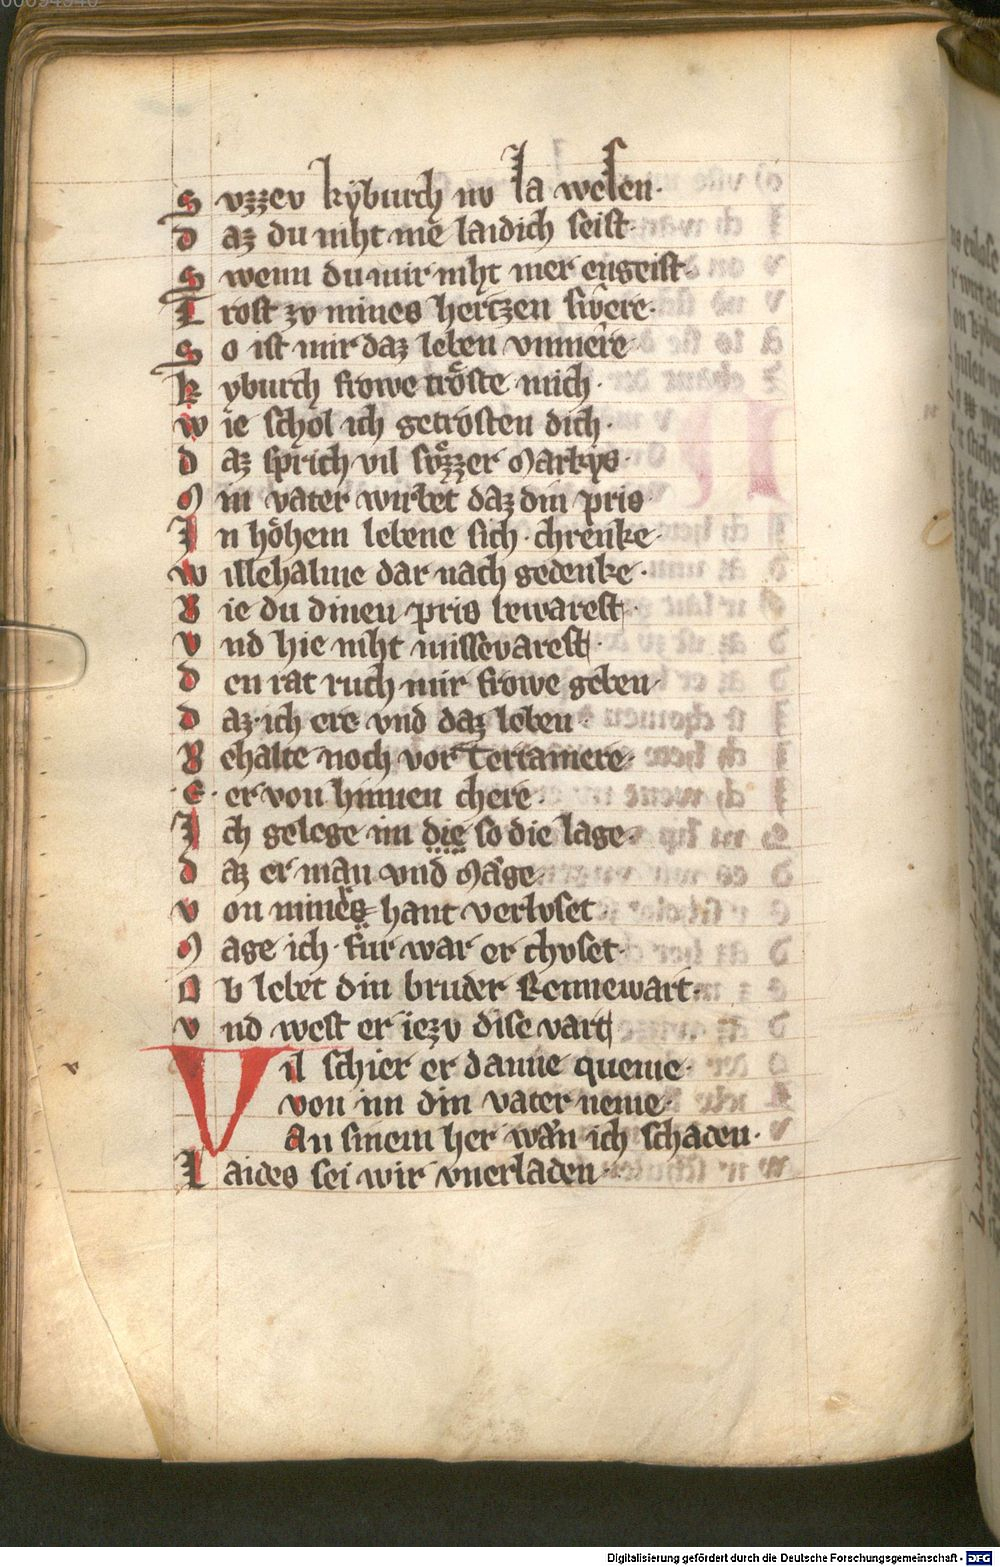 S vzzev kyburch nv la wesen·
D az du niht me laidich seist·
S wenn du mir niht mer engeist·
T rost zv mines hertzen swere·
S o ist mir daz leben vnmere·
K yburch frowe tröste mich·
W ie schol ich getrosten dich·
D az sprich vil svͤzzer Markys·
M in vater wirbet daz din pris
I n hohem lebene sich chrenke·
W illehalme dar nach gedenke·
B ie du dinen pris bewarest·
V nd hie niht missevarest·
D en rat ruch mir frowe geben·
D az ich ere vnd daz leben·
B ehalte noch vor Terramere·
E er von hinnen chere·
I ch gelege im die so die lage·
D az er man vnd Mage·
V on mines hant verlvset
M age ich fur war er chvset·
O b lebet din bruder Rennewart·
V nd west er iezv dise vart
Vil schier er danne queme·
von im din vater neme·
An sinem her wan ich schaden·
L aides sei wir vnerladen·
Digitalisierung gefördert durch die Deutsche Forschungsgemeinschaft - DFG